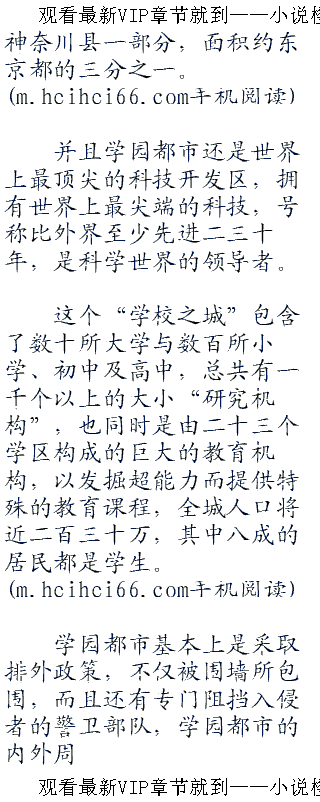 观看最新VIP章节就到——小说检
神奈川县一部分，面积约东
京都的三分之一。
(m.hcihci66.com手机阅读)
并且学园都市还是世界
上最顶尖的科技开发区，拥
有世界上最尖端的科技，号
称比外界至少先进二三十
年，是科学世界的领导者。
这个“学校之城”包含
了数十所大学与数百所小
学、初中及高中，总共有一
千个以上的大小“研究机
构”，也同时是由二十三个
学区构成的巨大的教育机
构，以发掘超能力而提供特
殊的教育课程，全城人口将
近二百三十万，其中八成的
居民都是学生。
(m.hcihci66.com手机阅读)
学园都市基本上是采取
排外政策，不仅被围墙所包
围，而且还有专门阻挡入侵
者的警卫部队，学园都市的
内外周
观看最新VIP章节就到——小说检